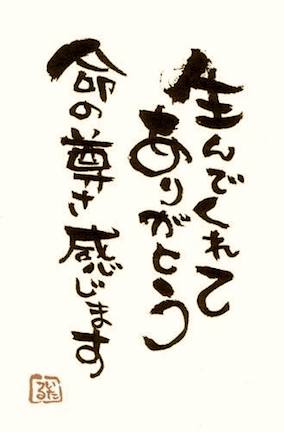 生んでくれて
ありがとう
命の尊さ
感じます